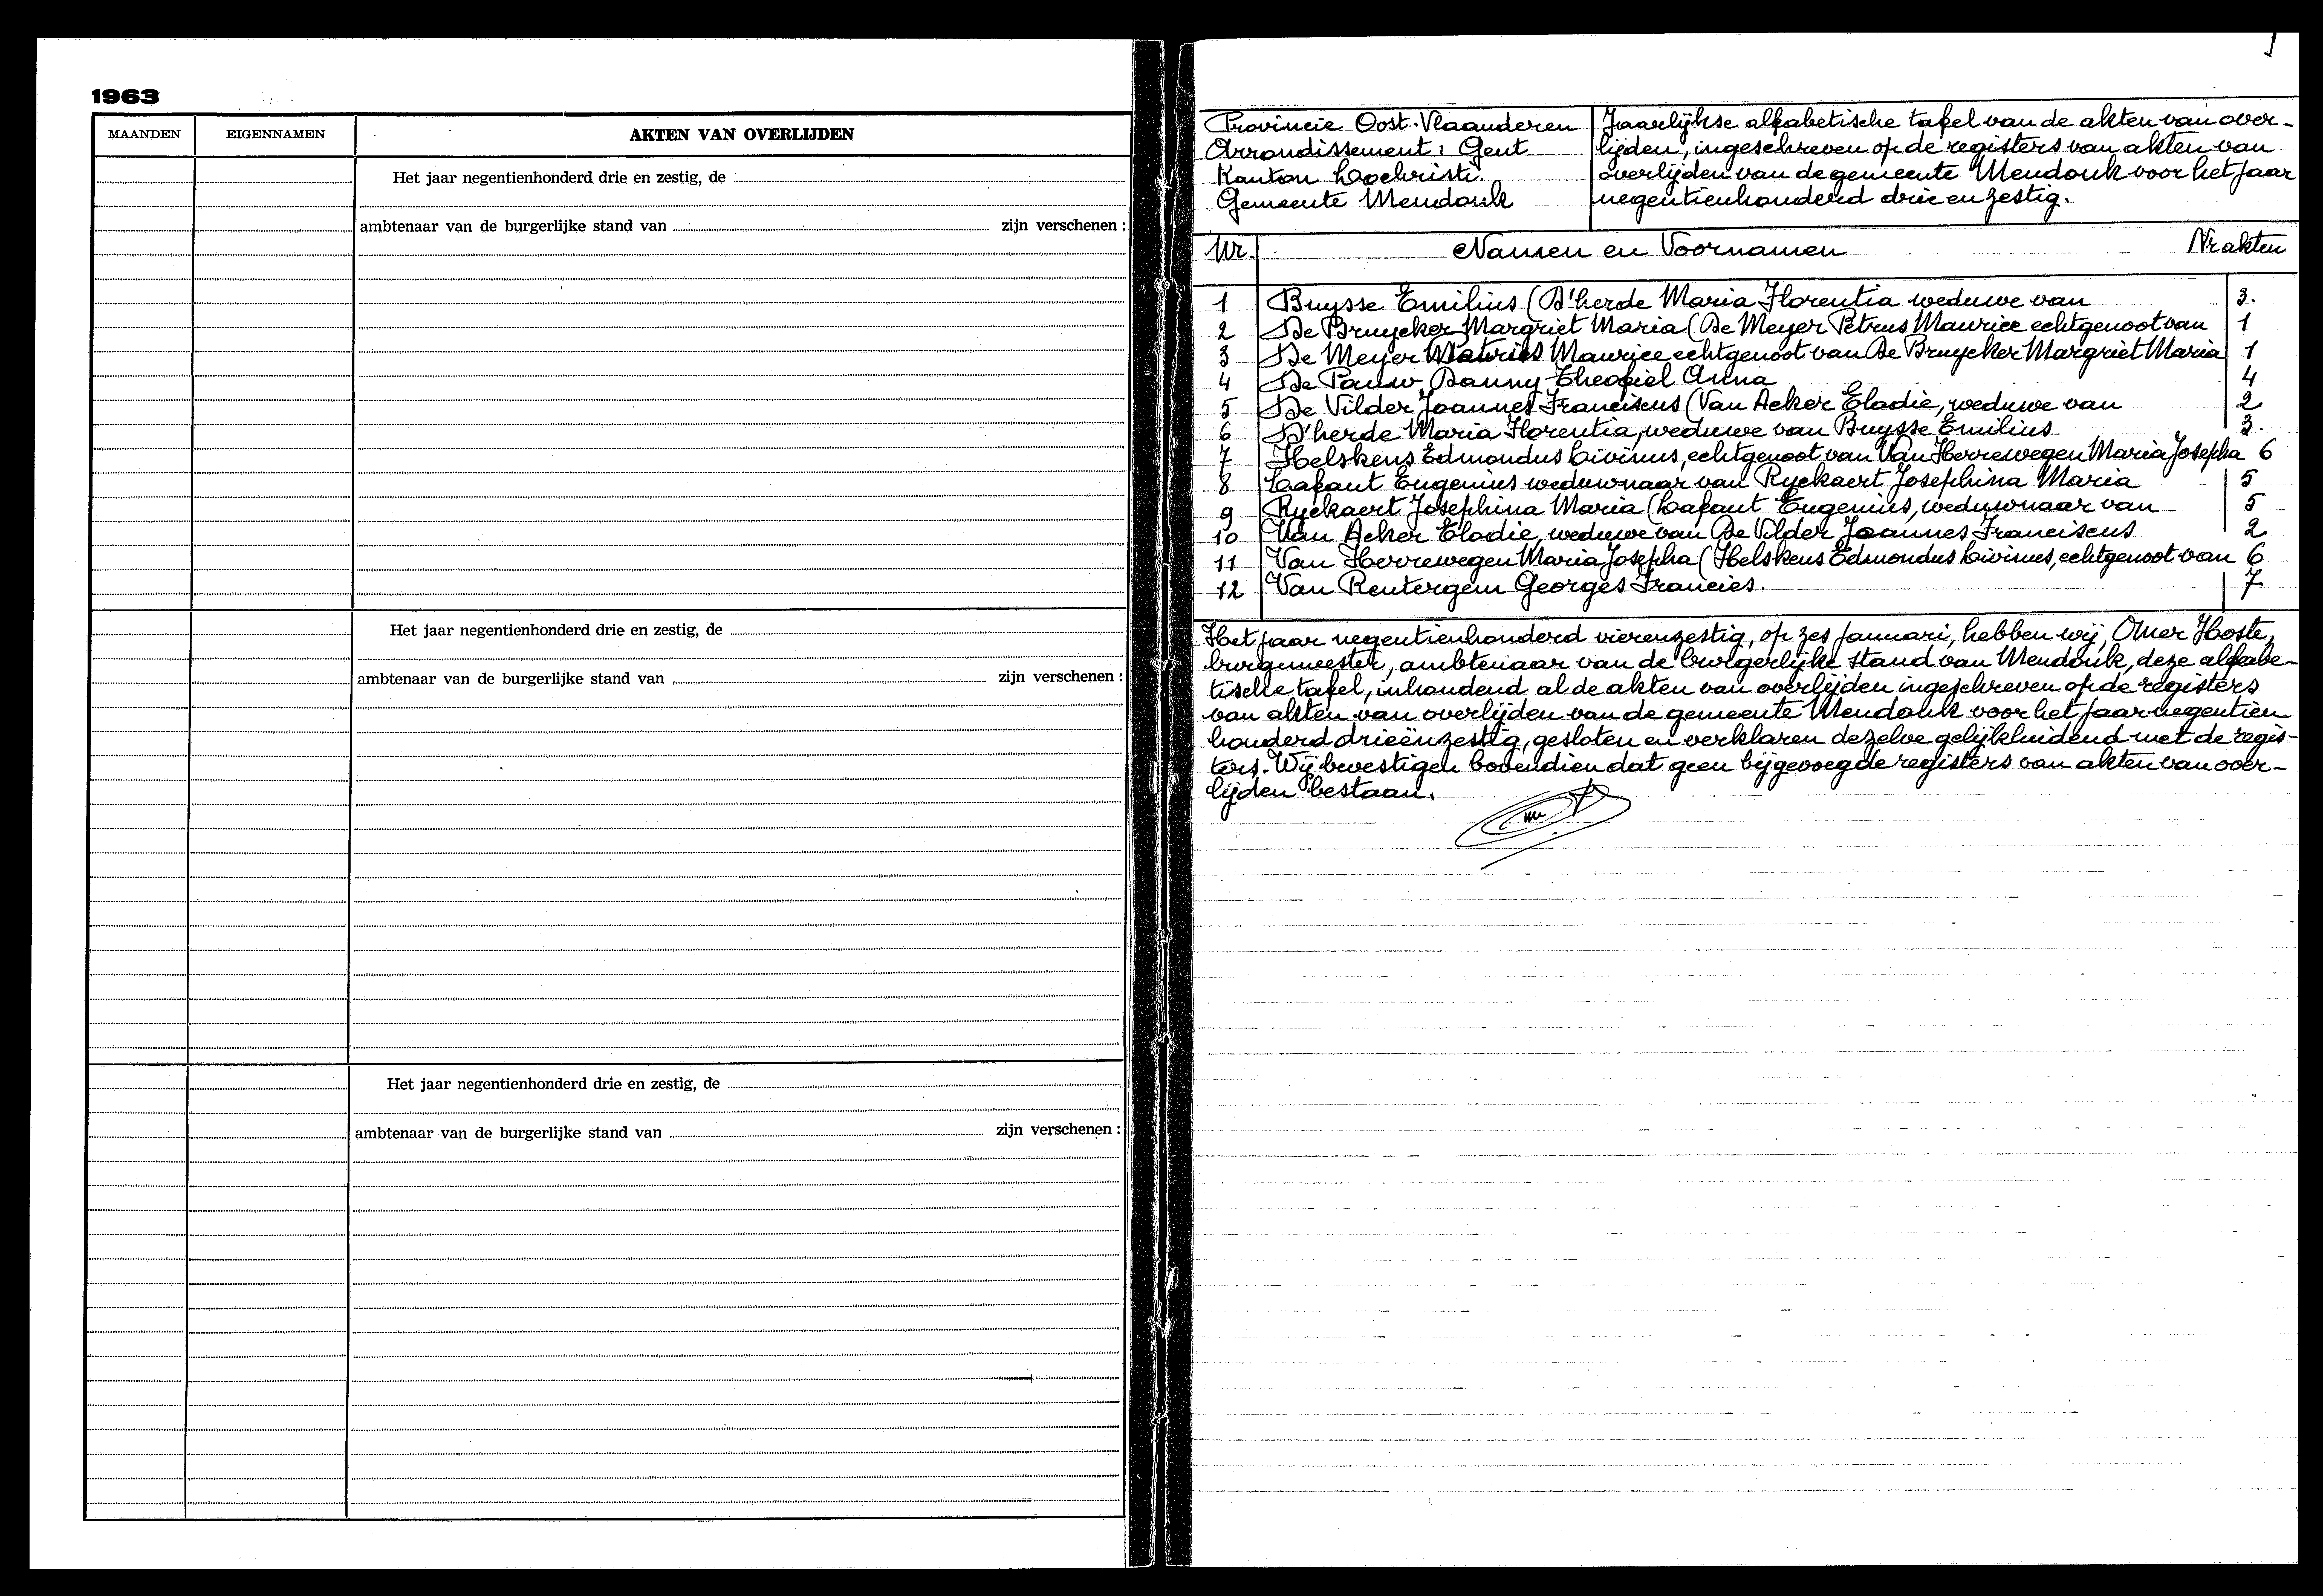 1963
MAANDEN EIGENNAMEN AKTEN VAN OVERLIJDEN
Het jaar negentienhonderd drie en zestig, de
ambtenaar van de burgerlijke stand van zijn verschenen :
Het jaar negentienhonderd drie en zestig, de
ambtenaar van de burgerlijke stand van zijn verschenen :
Het jaar negentienhonderd drie en zestig, de
ambtenaar van de burgerlijke stand van zijn verschenen :
Provincie Oost-Vlaanderen
Arrondissement : Gent
Kanton Lochristi.
Gemeente Mendonk
Jaarlijkse alfabetische tafel van de akten van over-
lijden, ingeschreven op de registers van akten van
overlijden van de gemeente Mendonk voor het jaar
negentienhonderd drie en zestig.
Nr. Namen en Voornamen Nr akten
1 Buysse Emilius (D'herde Maria Florentia weduwe van 3.
2 De Bruycker Margriet Maria (De Meyer Petrus Maurice echtgenoot van 1
3 De Meyer Maurice echtgenoot van De Bruycker Margriet Maria 1
4 De Pauw Danny Theofiel Anna 4
5 De Vilder Joannes Franciscus (Van Acker Elodie, weduwe van 2
6 D'herde Maria Florentia, weduwe van Buysse Emilius 3.
7 Helskens Edmondus Livinus, echtgenoot van Van Herrewegen Maria Josepha 6
8 Lafaut Eugenius weduwnaar van Ryckaert Josephina Maria 5
9 Ryckaert Josephina Maria (Lafaut Eugenius, weduwnaar van 5
10 Van Acker Elodie, weduwe van De Vilder Joannes Franciscus 2
11 Van Herrewegen Maria Josepha (Helskens Edmondus Livinus, echtgenoot van 6
12 Van Rentergem Georges Francies. 7
Het jaar negentienhonderd vierenzestig, op zes januari, hebben wij, Omer Hoste,
burgemeester, ambtenaar van de burgerlijke stand van Mendonk, deze alfabe-
tische tafel, inhoudend al de akten van overlijden ingeschreven op de registers
van akten van overlijden van de gemeente Mendonk voor het jaar negentien
honderd drieënzestig, gesloten en verklaren dezelve gelijkluidend met de regis-
ters. Wij bevestigen bovendien dat geen bijgevoegde registers van akten van over-
lijden bestaan.